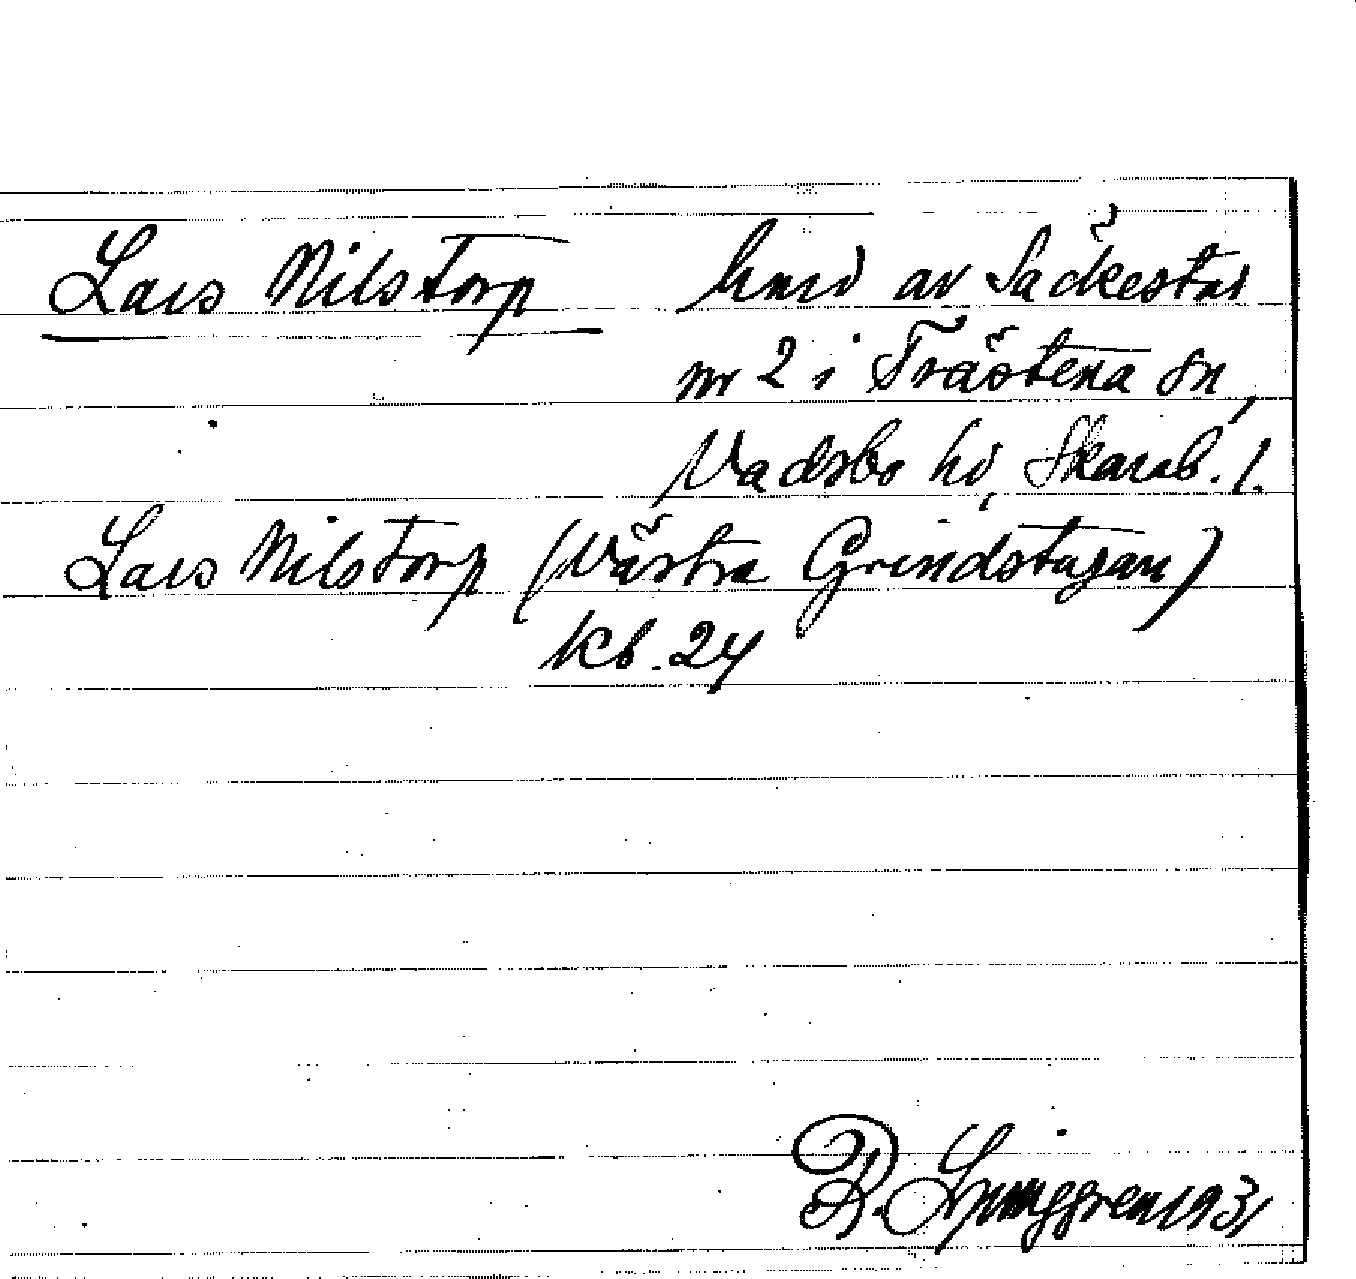 Lars Nilstorp hmd av Säckestad
nr 2 i Trästena sn,
Vadsbo hd, Skarab. l.
Lars Nilstorp (Västra Grindstugan)
kb. 24
R. Ljunggren 1931